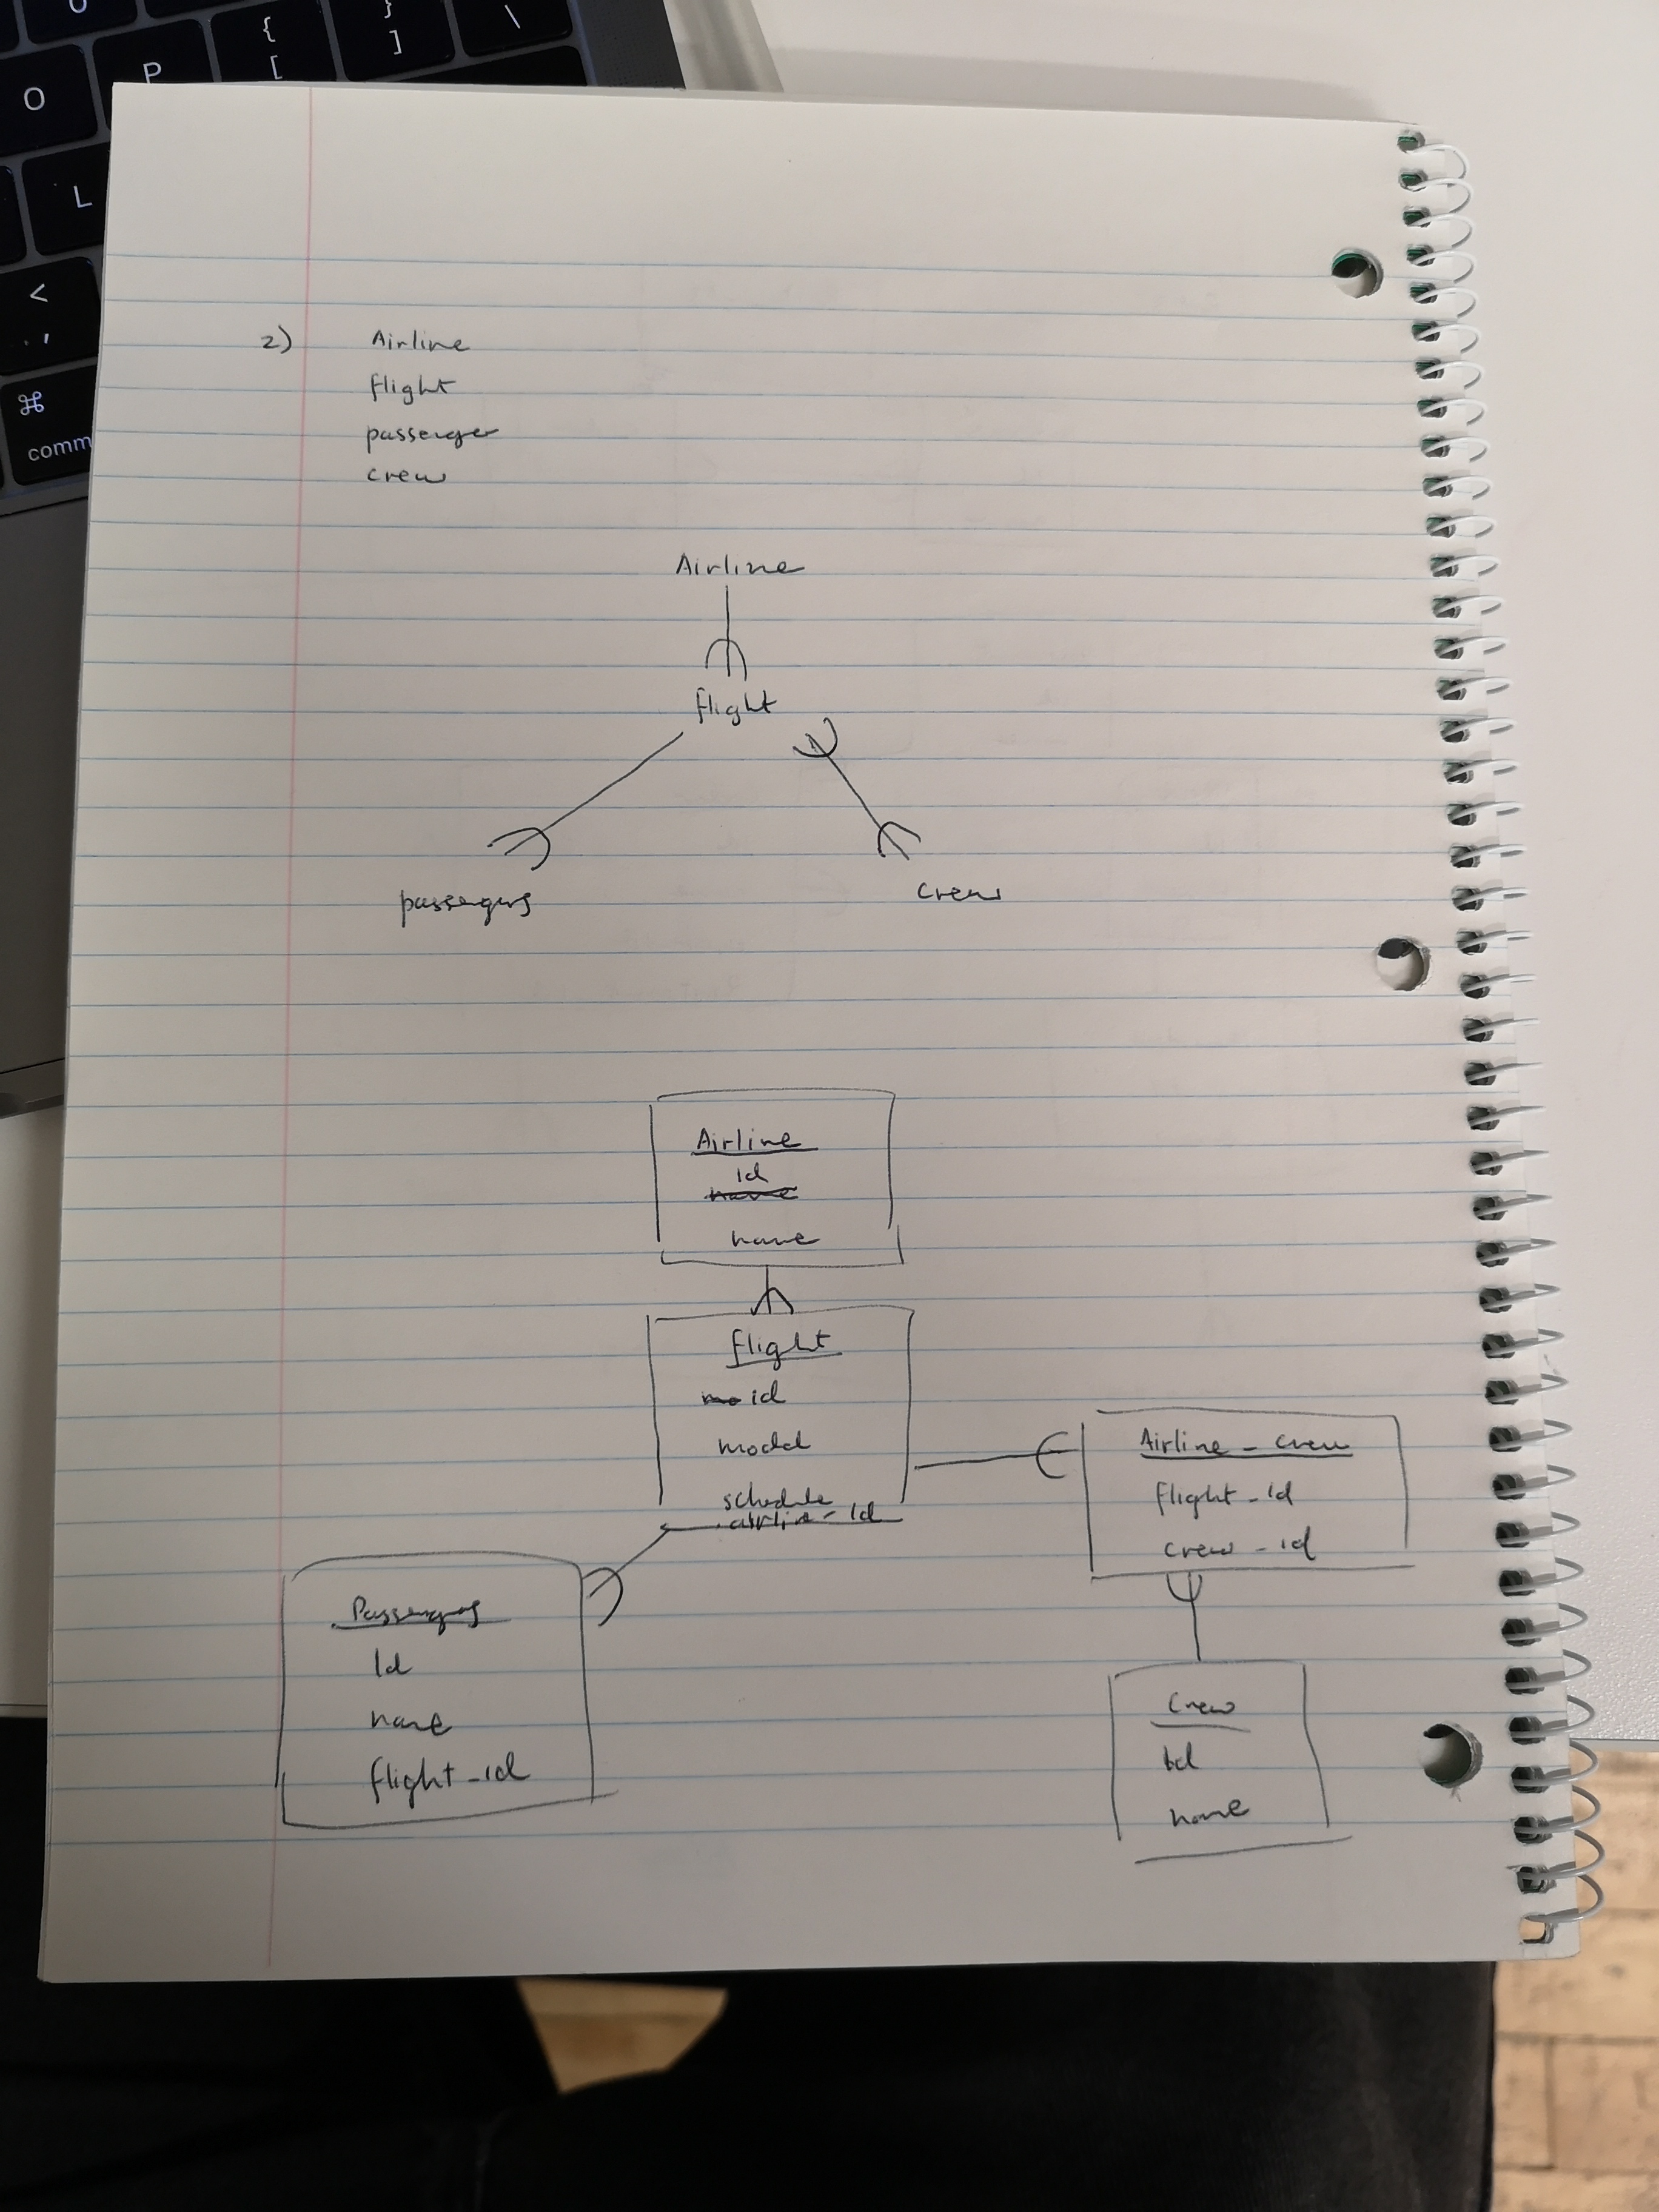 {
[
}
]
\
O
P
L
<
,
⌘
comm
2) Airline
flight
passenger
crew
Airline
flight
passengers
crew
Airline
id
name
name
flight
id
model
schedule
airline_id
Airline_crew
flight_id
crew_id
Passengers
Id
name
flight_id
Crew
id
name